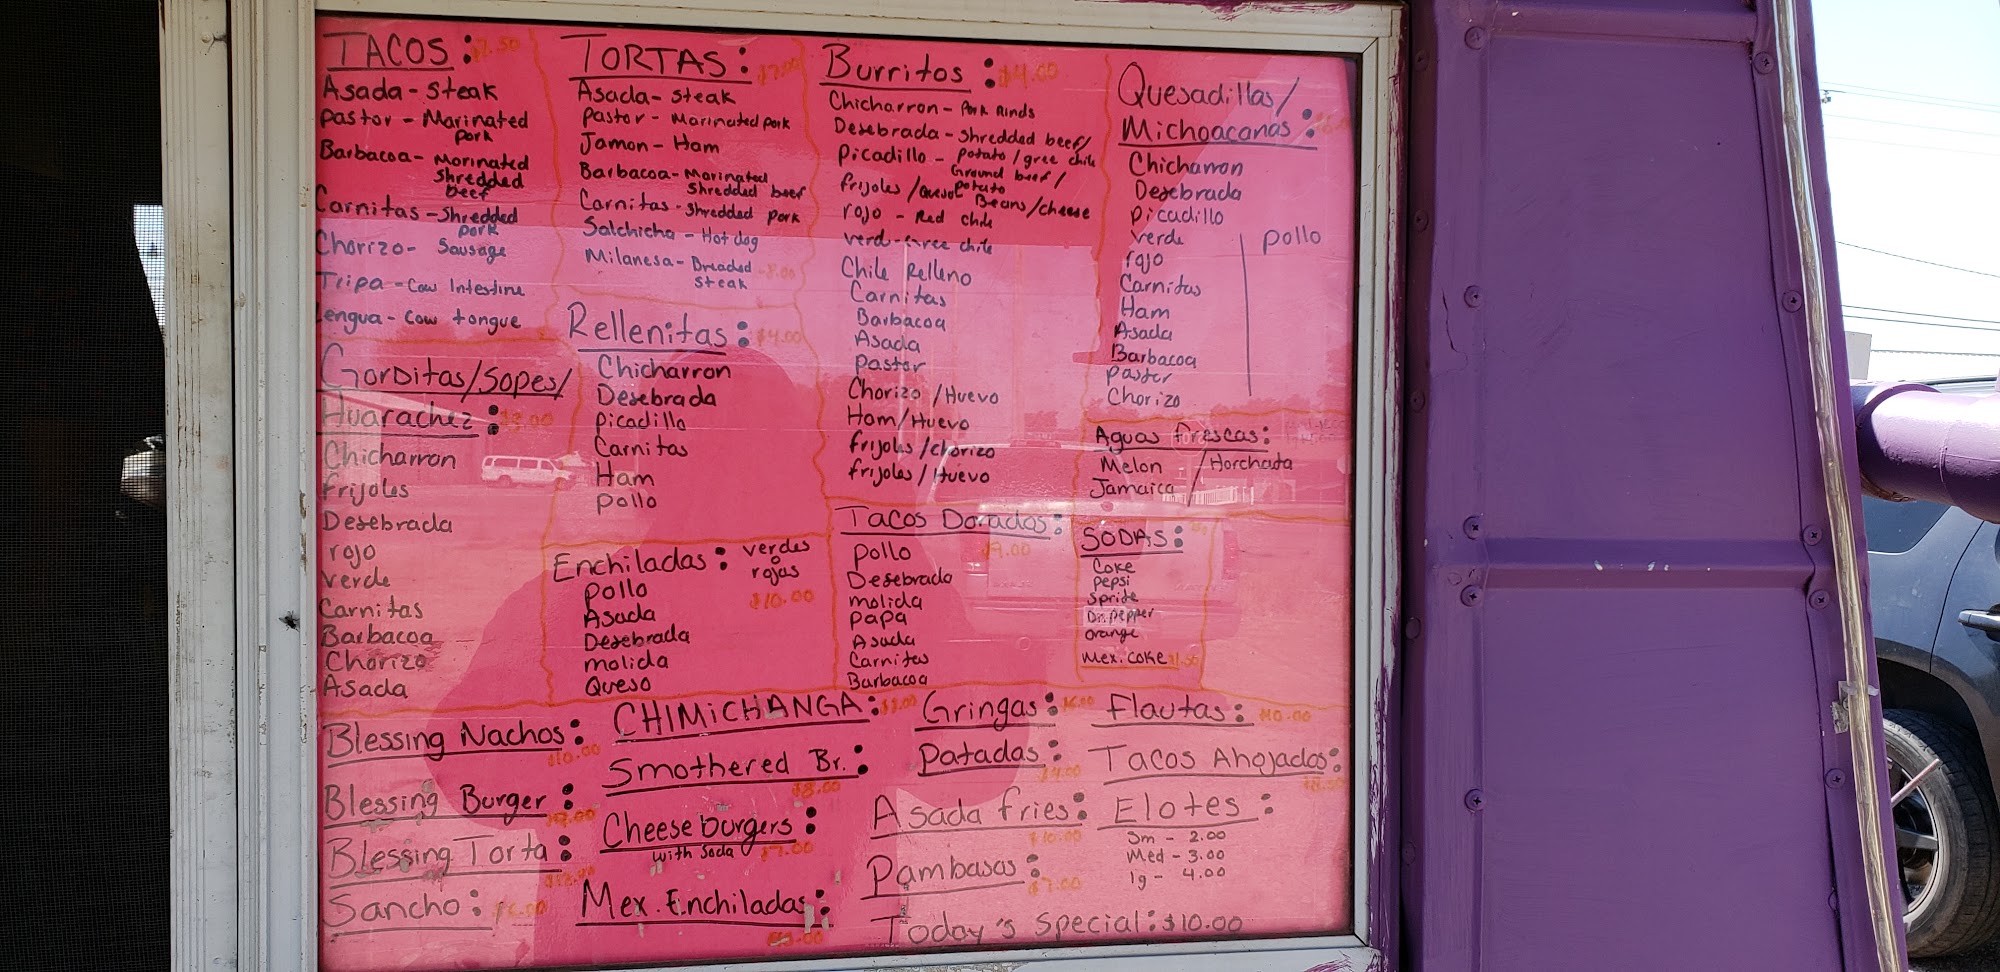 TACOS:
Asada - Steak
Pastor - Marinated
Pork
Barbacoa - Marinated
Shredded
beef
Carnitas - Shredded
pork
Chorizo - Sausage
Tripa - Cow Intestine
Lengua - Cow tongue
Gorditas/Sopes/
Huarachez:
Chicharron
frijoles
Desebrada
rojo
verde
Carnitas
Barbacoa
Chorizo
Asada
TORTAS: $7.00
Asada - Steak
Pastor - Marinated pork
Jamon - Ham
Barbacoa - Marinated
Shredded beef
Carnitas - Shredded pork
Salchicha - Hot dog
Milanesa - Breaded - 8.00
Steak
Rellenitas: $4.00
Chicharron
Desebrada
Picadillo
Carnitas
Ham
Pollo
Enchiladas: verdes
o
rojas
$10.00
Pollo
Asada
Desebrada
molida
Queso
Burritos: $4.00
Chicharron - Pork Rinds
Desebrada - Shredded beef/
Picadillo - Potato/gree chile
Ground beef/
Potato
frijoles/Queso Beans/cheese
rojo - Red chile
verd - Gree chile
Chile Relleno
Carnitas
Barbacoa
Asada
Pastor
Chorizo/Huevo
Ham/Huevo
frijoles/chorizo
frijoles/Huevo
Tacos Dorados:
$9.00
Pollo
Desebrada
molida
papa
Asada
Carnitas
Barbacoa
Quesadillas/
Michoacanas:
Chicharron
Desebrada
Picadillo
verde
rojo
Carnitas
Ham
Asada
Barbacoa
Pastor
Chorizo
Pollo
Aguas frescas:
Melon / Horchata
Jamaica
SODAS:
Coke
Pepsi
Spride
Dr. Pepper
Orange
Mex. Coke
Blessing Nachos:
$10.00
Blessing Burger:
Blessing Torta:
Sancho:
CHIMICHANGA:
Smothered Br.:
$8.00
Cheeseburgers:
with Soda $7.00
Mex. Enchiladas:
Gringas:
Patadas:
Asada fries:
$10.00
Pambasos:
$7.00
Flautas: $10.00
Tacos Ahojados:
Elotes:
Sm - 2.00
Med - 3.00
lg - 4.00
Today's Special: $10.00